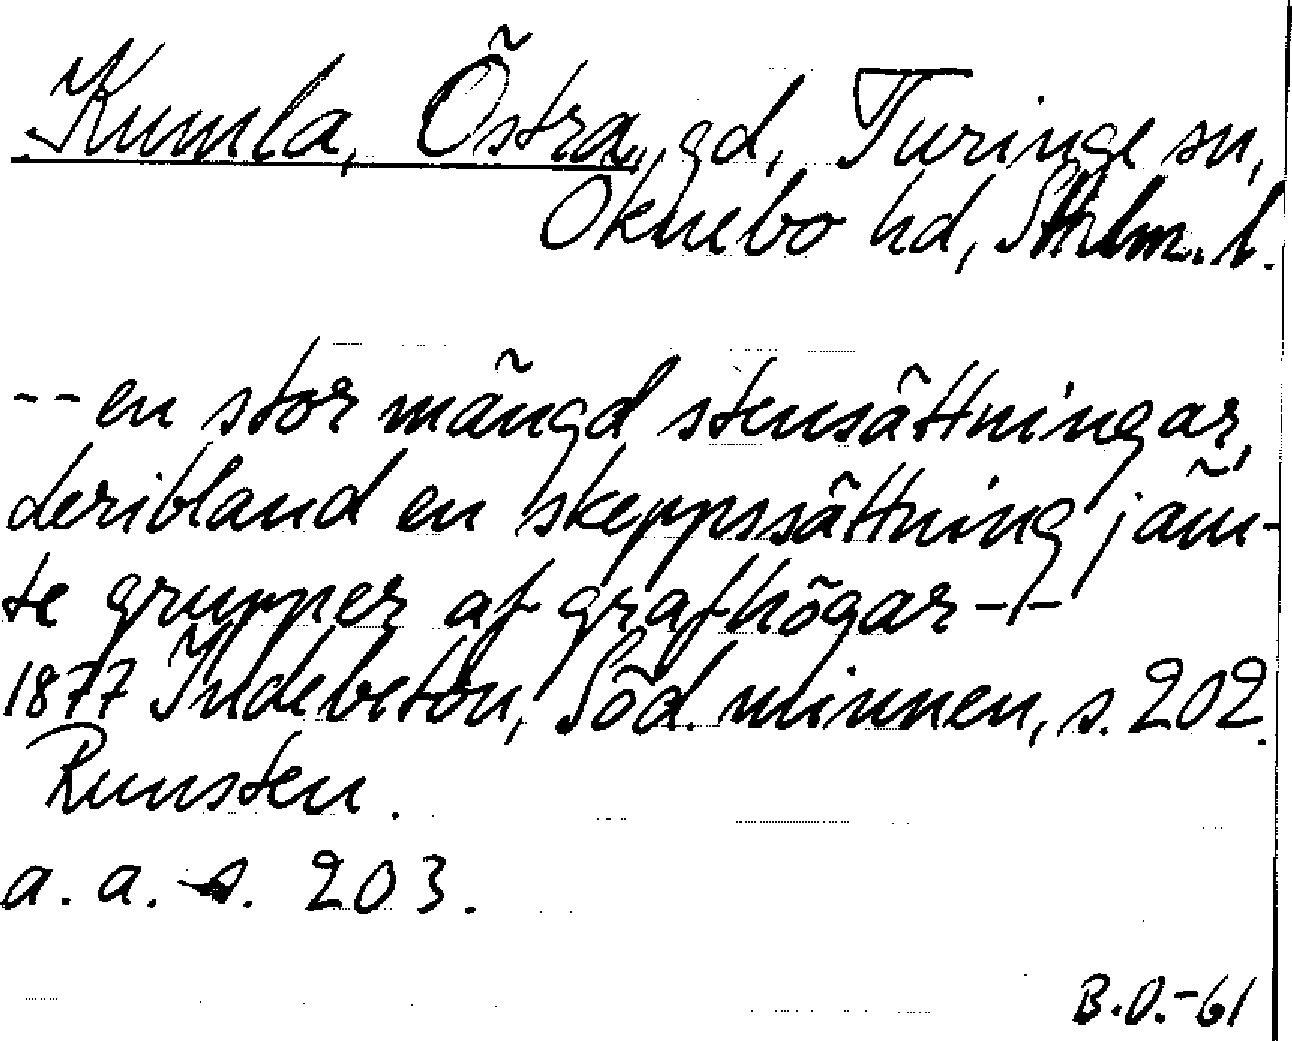 Kumla, Östra, gd, Turinge sn,
Öknebo hd, Sthlm. l.
-- en stor mängd stensättningar,
deribland en skeppssättning jäm-
te grupper af grafhögar --
1877 Indebetou, Söd. minnen, s. 202.
Runsten.
a. a. s. 203.
B.O.-61